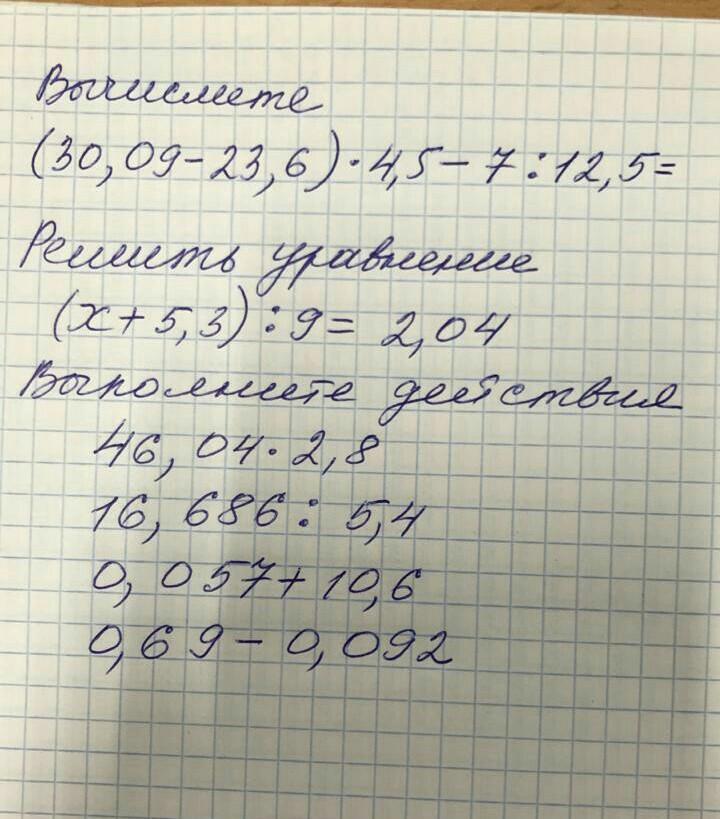 Вычислите
(30,09-23,6)·4,5-7:12,5=
Решить уравнение
(х+5,3):9=2,04
Выполните действия
46,04·2,8
16,686:5,4
0,057+10,6
0,69-0,092